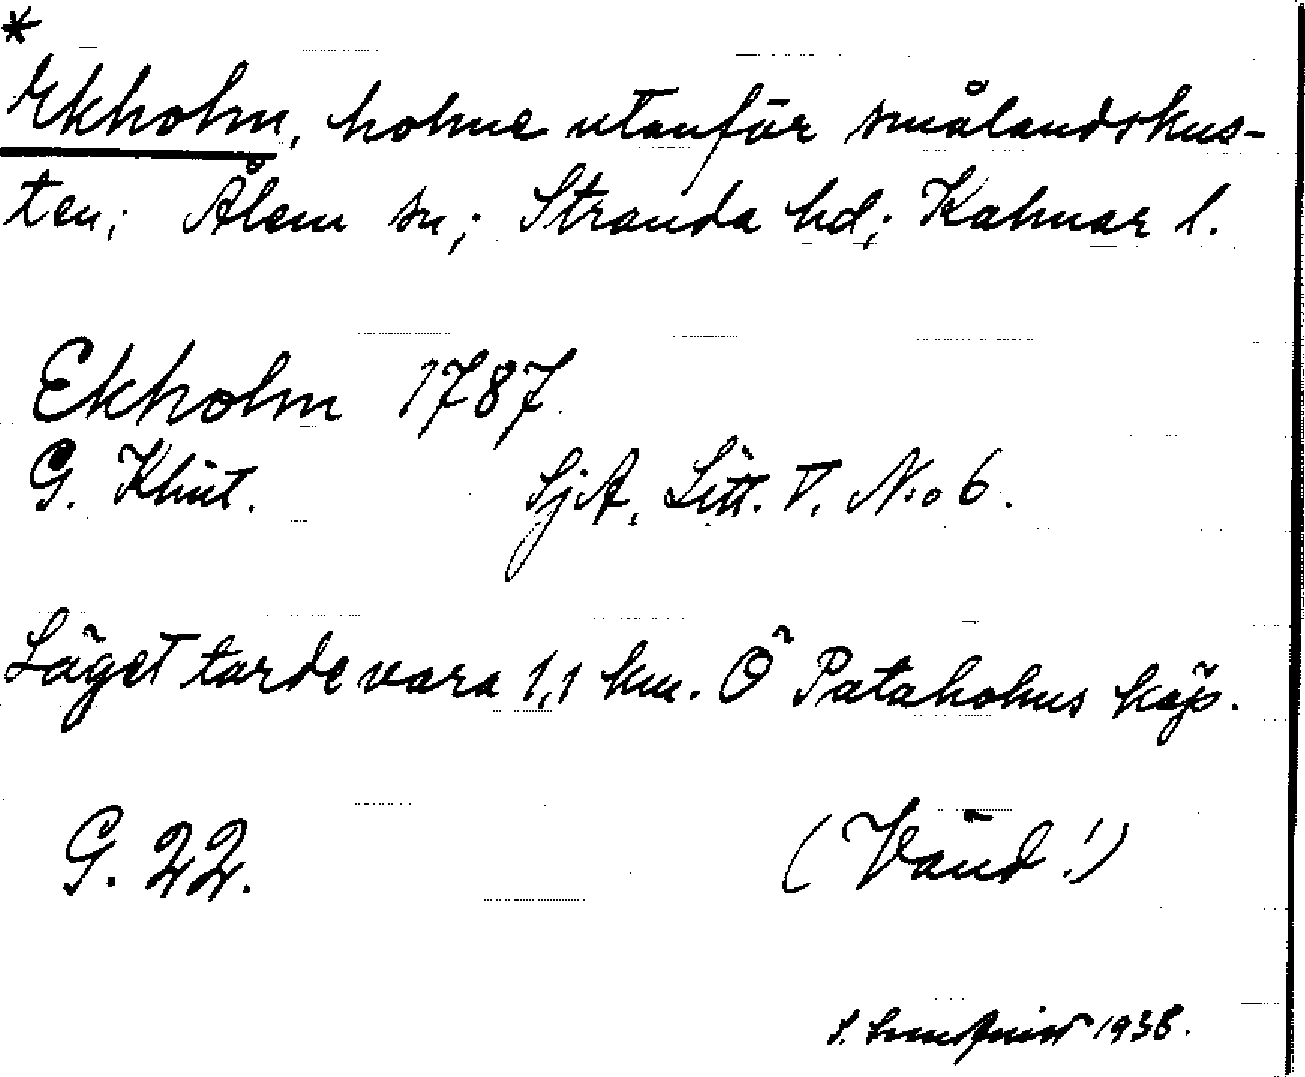 *
Ekholm, holme utanför smålandskus-
ten; Ålem sn; Stranda hd; Kalmar l.
Ekholm 1787.
G. Klint. SjA, Litt. V. No 6.
Läget torde vara 1,1 km. Ö Pataholms köp.
G. 22. (Vänd!)
S. 1938.